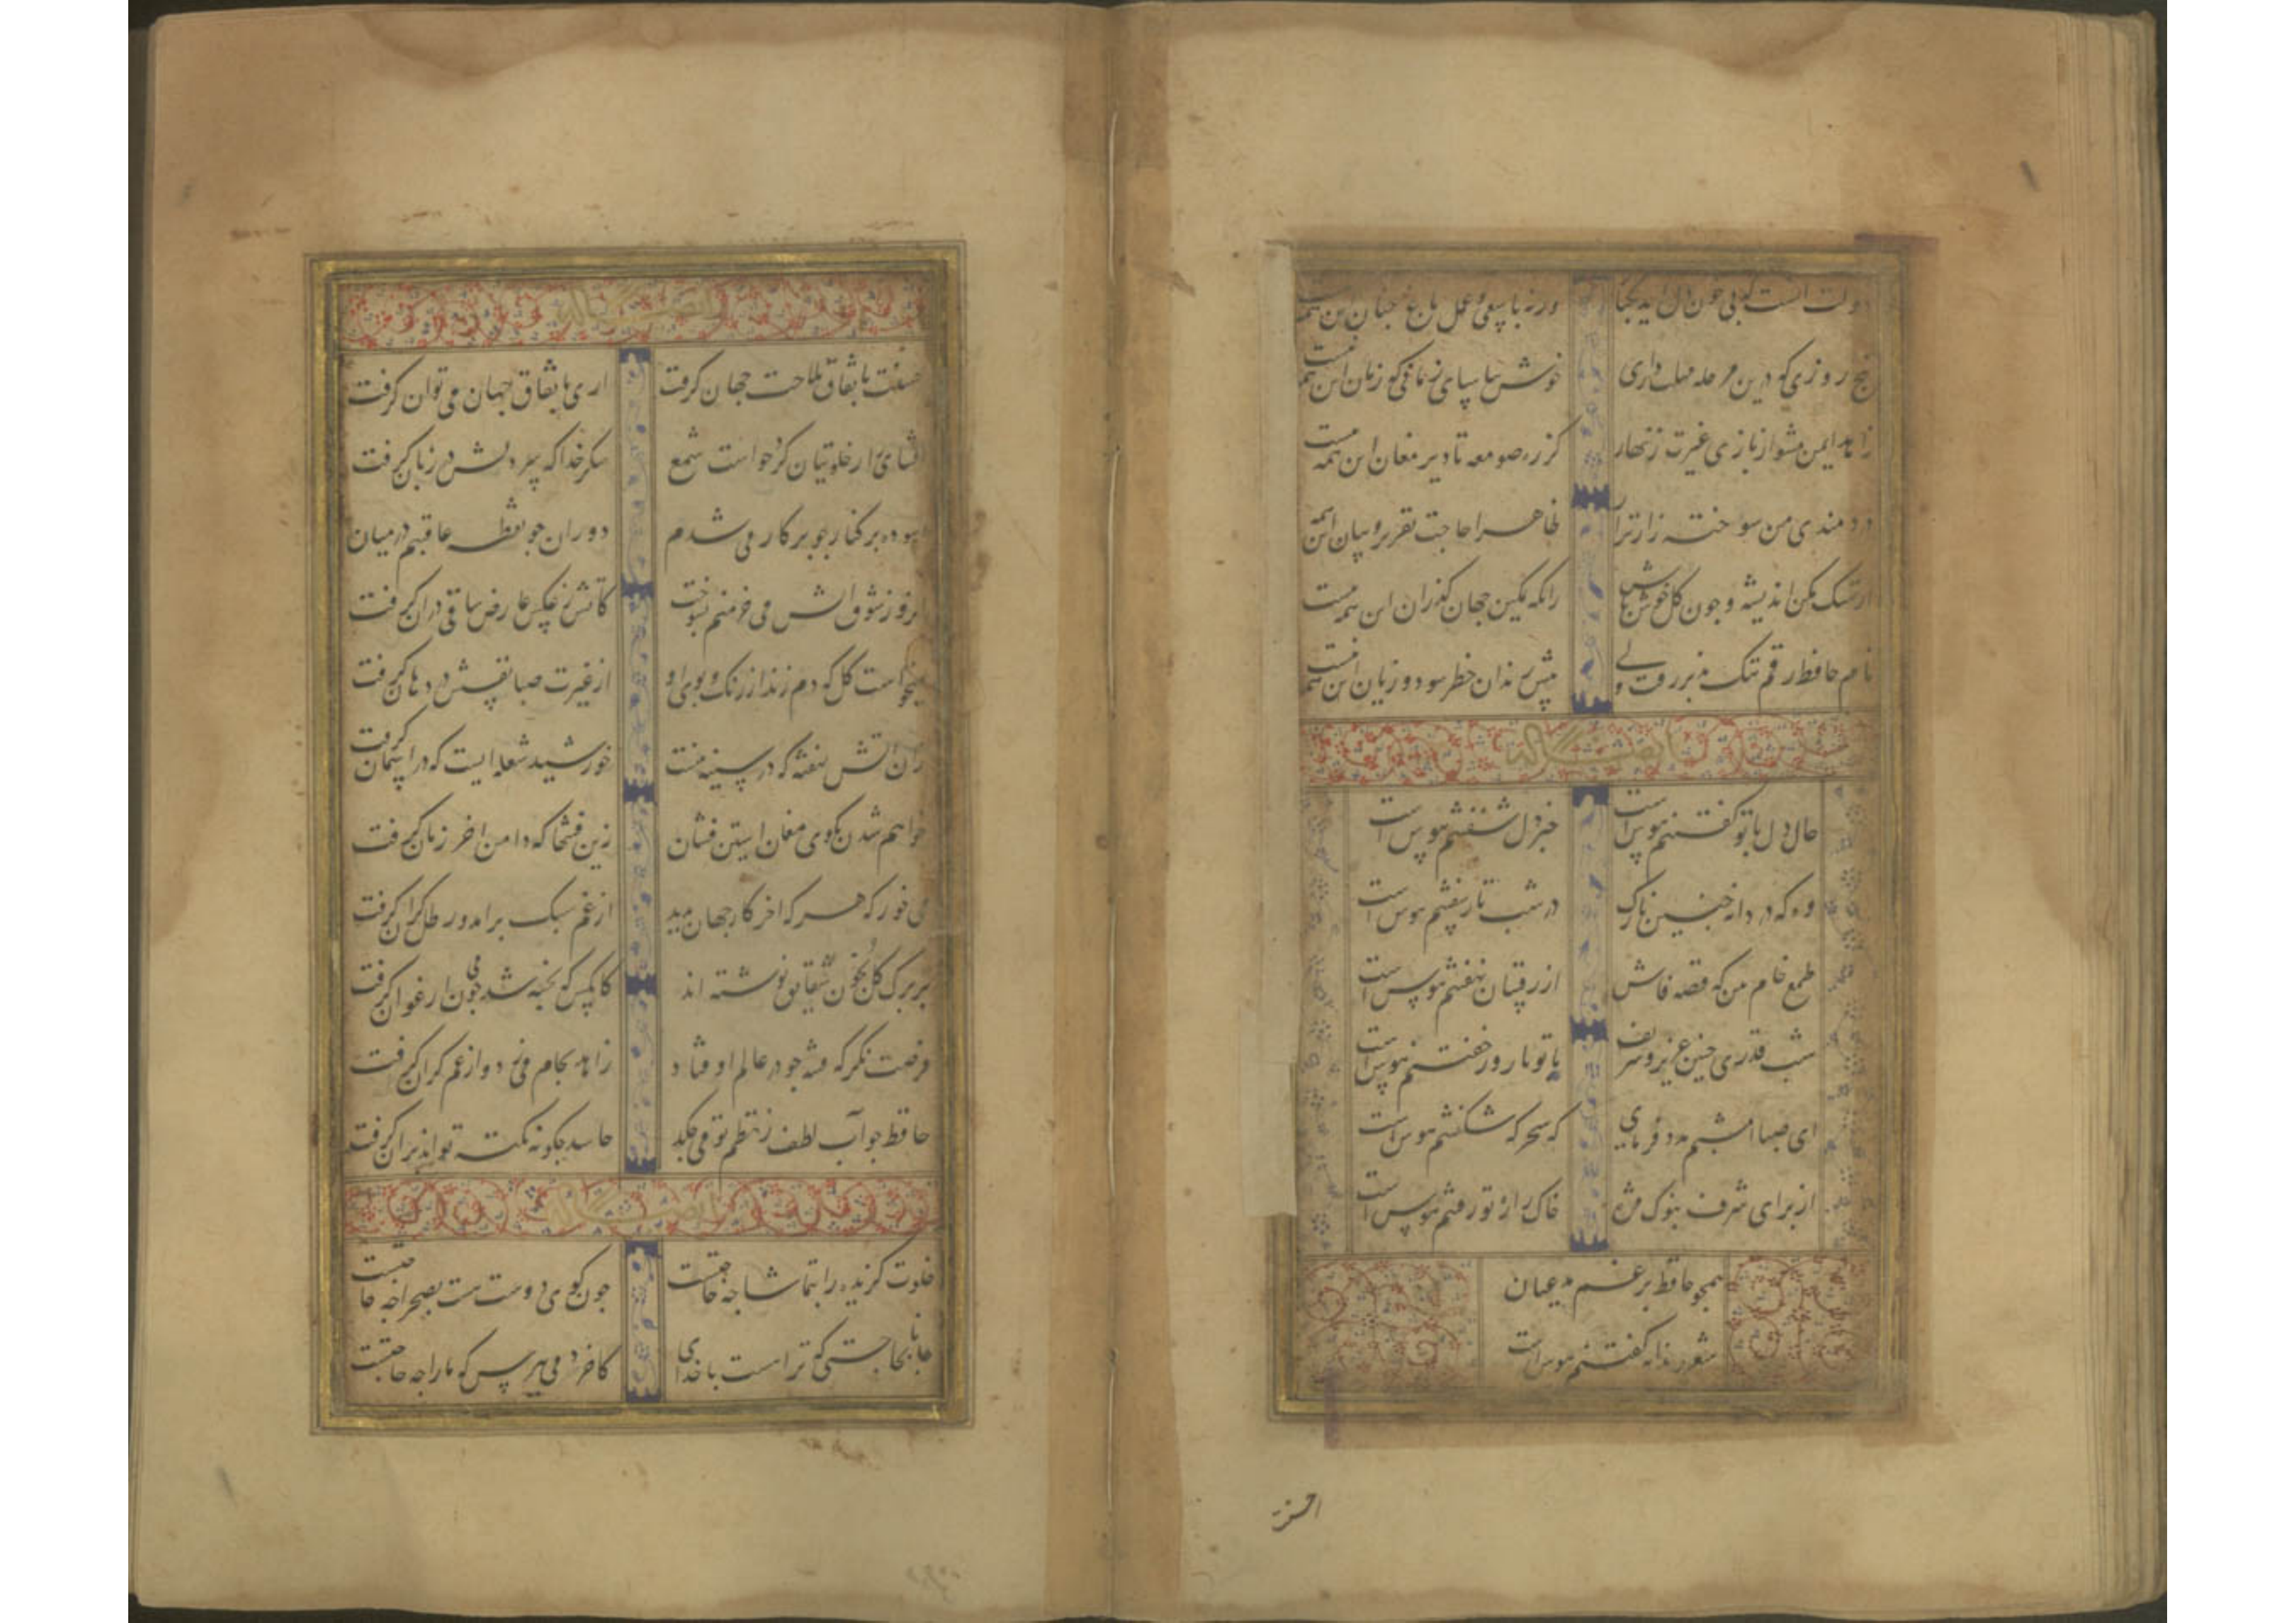 دولت آنست که بی خون دل آید بکنار ورنه با سعی و عمل باغ جنان این همه نیست
پنج روزی که درین مرحله مهلت داری خوش بیاسای زمانی که زمان این همه نیست
زاهد ایمن مشو از بازی غیرت زنهار که ز ره صومعه تا دیر مغان این همه نیست
دردمندی من سوخته زار ترا ظاهرا حاجت تقریر و بیان این همه نیست
از تنک مکن اندیشه و چون کل خوش باش زانکه تمکین جهان کذران این همه نیست
نام حافظ رقم تنک پذیرفت ولی پیش رندان خطر سود و زیان این همه نیست
ایضا له
حال دل با تو کفتنم هوس است خبر دل شنفتنم هوس است
وه که دردانه چنین نازک در شب تار سفتنم هوس است
طمع خام من که قصه فاش از رقیبان نهفتنم هوس است
شب قدری چنین عزیز و شریف با تو تا روز خفتنم هوس است
ای صبا امشبم مدد فرمای که سحرکه شکفتنم هوس است
از برای شرف بنوک مژه خاک راه تو رفتنم هوس است
همچو حافظ برغم مدعیان
شعر رندانه کفتنم هوس است
ایضا له
حسنت باتفاق ملاحت جهان کرفت اری باتفاق جهان می توان کرفت
افشای راز خلوتیان کرد خواست شمع شکر خدا که سر دلش در زبان کرفت
اسوده بر کنار چو برکار می شدم دوران چو نقطه عاقبتم در میان
آنروز شوق اتش می خرمنم بسوخت کاتش ز عکس عارض ساقی دران کرفت
میخواست کل که دم زند از رنک و بوی او از غیرت صبا نفسش در دهان کرفت
زان اتش نهفته که در سینه منست خورشید شعله ایست که در اسمان کرفت
خواهم شدن بکوی مغان استین فشان زین فتنها که دامن اخر زمان کرفت
می خور که هر که اخر کار جهان بدید از غم سبک برامد و رطل کران کرفت
بر برک کل بخون شقایق نوشته اند کانکس که پخته شد می چون ارغوان کرفت
فرصت نکر که فتنه چو در عالم اوفتاد زاهد بجام می زد و از غم کران کرفت
حافظ چو آب لطف ز نظم تو می چکد حاسد چکونه نکته تواند بران کرفت
ایضا له
خلوت کزیده را بتماشا چه حاجتست چون کوی دوست هست بصحرا چه حاجتست
جانا بحاجتی که ترا هست با خدای کاخر دمی بپرس که ما را چه حاجتست